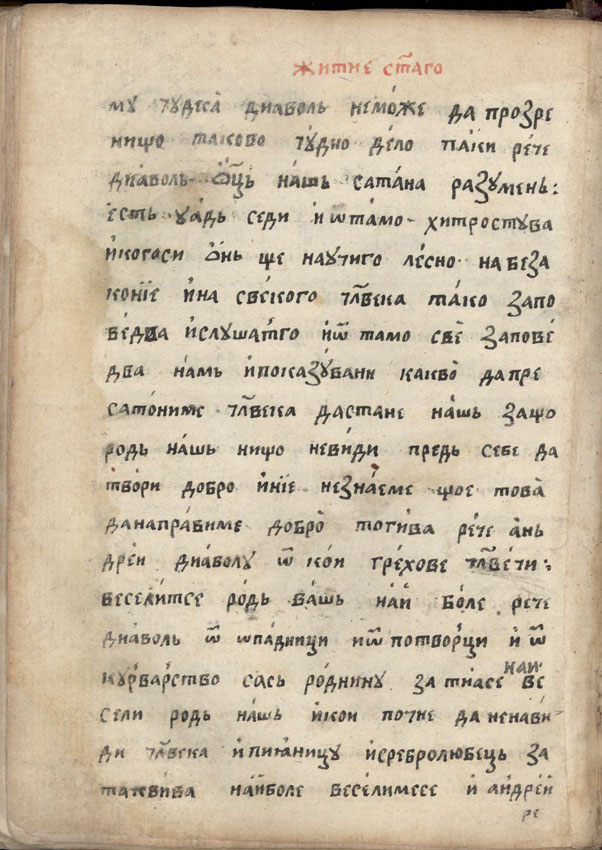 житие ст҃аго
му чудеса̀ диаволь немо́же да прозре
нищо таково чу́дно де́ло па́ки ре́че
диаволь ѻц҃ь на́шь сата́на разумень:
есть у а́дь седи и҆ѿта́мо хитростува
и҆когаси ѻ҆нь ще научиго ле́сно на беза
коні́е и҆на све́кого чл҃века та́ко запо
ве́два и҆слуша́тго и҆ѿ тамо све̏ запове́
два на́мь и҆показу́вани какво̀ да пре
сато́ниме чл҃века да стане на́шь за що
родь на́шь нищо неви́ди предь себе да
тво́ри добро и҆ни́е незна́еме що е това̀
да напра́виме добро̀ тогива ре́че а҆нь
дре́и диаволу ѿ кои гре́хове чл҃ве́чи:
весели́тсе ро́дь ва́шь на́и бо́ле рече
диаволь ѿ ѡпа́дници и ѿ потво́рци и҆ ѿ
ку́рва́рство сась ро́днину за тиасе наи ве
сели родь на́шь и҆кои почне да ненави́
ди чл҃века и҆пиꙗ́ницу и҆сребролюбець за
таквива на́иболе веселимсе и҆ андре́й
ре